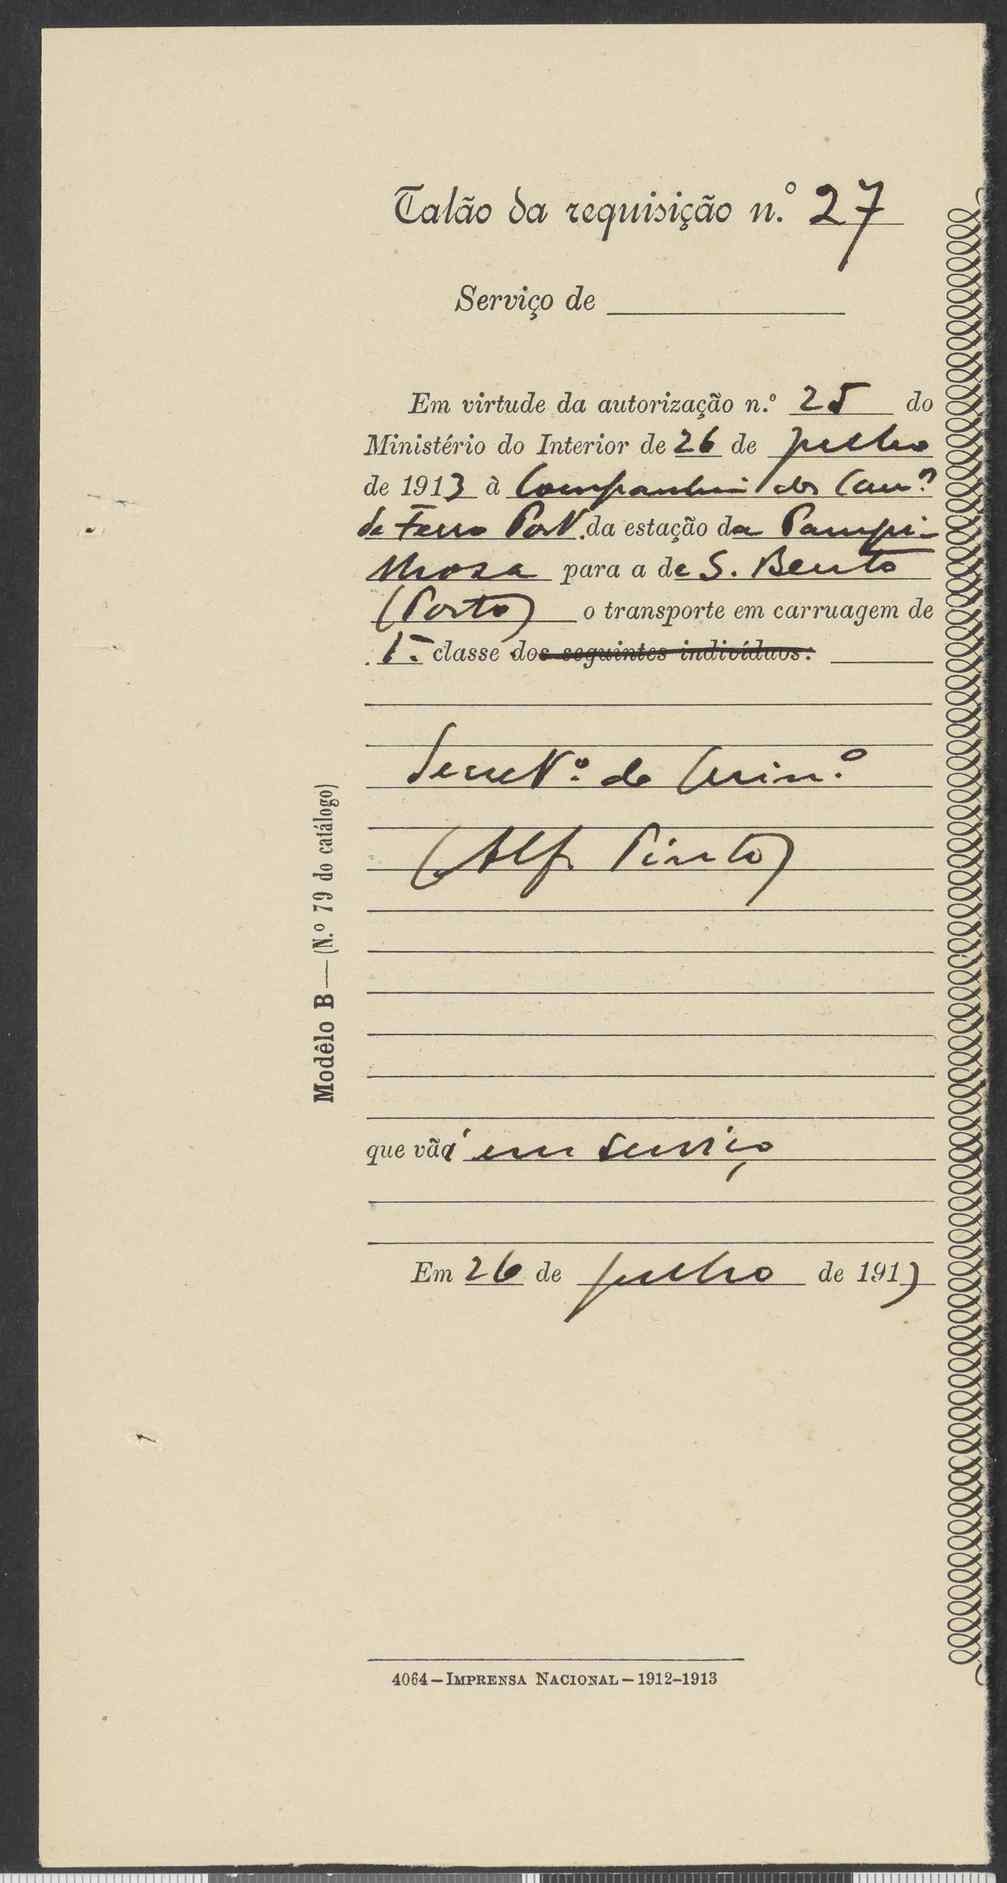 Talão da requisição n.º 27
Serviço de
Em virtude da autorização n.º 25 do
Ministério do Interior de 26 de julho
de 1913 à Companhia dos Cam.os
de Ferro Port. da estação da Pampi-
lhosa para a de S. Bento
(Porto) o transporte em carruagem de
1.ª classe dos seguintes indivíduos:
Secret.º do Crim.º
(Alf. Pinto)
que vai em serviço
Em 26 de julho de 1913
Modêlo B — (N.º 79 do catálogo)
4064 — IMPRENSA NACIONAL — 1912-1913